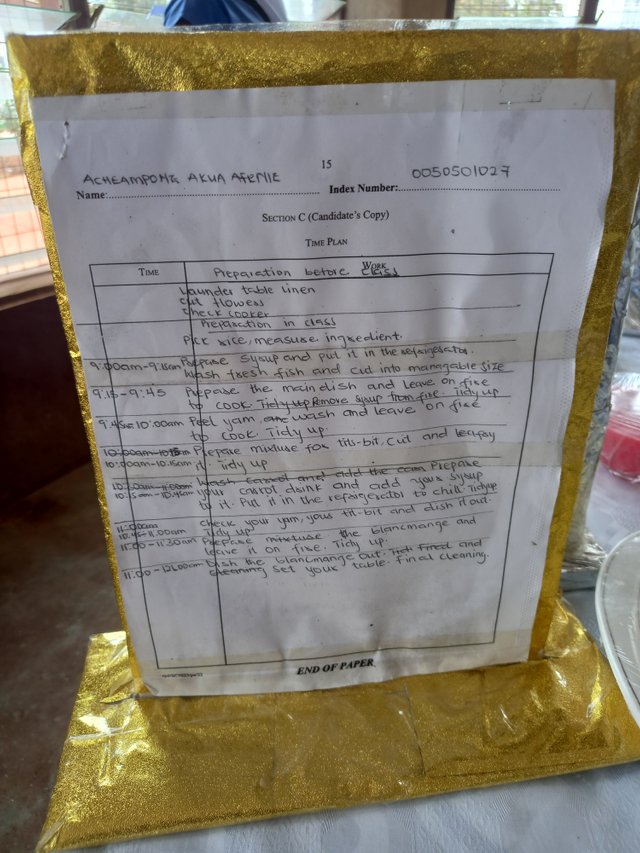 15
ACHEAMPONG AKUA AFERIE
0050501027
Name: Index Number:
SECTION C (Candidate's Copy)
TIME PLAN
TIME WORK
Preparation before class
Launder table linen
cut flowers
check cooker
Preparation in class
Pick rice, measure ingredient.
9:00am-9:15am Prepare syrup and put it in the refrigerator.
Wash fresh fish and cut into managable size
9:15-9:45 Prepare the main dish and leave on fire
to cook. Tidy up Remove syrup from fire. Tidy up
9:45-10:00am Peel yam, wash and leave on fire
to cook. Tidy up.
10:00am-10:15am Prepare mixture for tits-bit, cut and
10:00am-10:15am it. Tidy up
10:30am-11:00am Wash carrot and add the Prepare
10:15am-10:45am your carrot drink and add your syrup
to it. Put it in the refrigerator to chill. Tidy up
11:00am check your yam, your tit-bit and dish it out.
10:45-11:00am Tidy up
11:00-11:30am Prepare mixture the blancmange and
leave it on fire. Tidy up.
11:00-12:00am Dish the blancmange out. and
cleaning set your table. final cleaning.
END OF PAPER